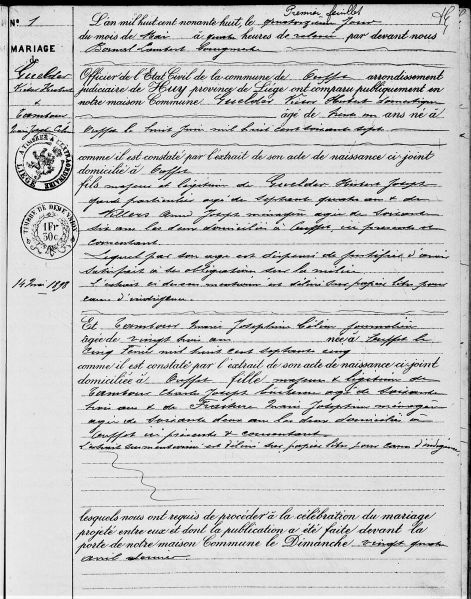 Premier feuillet
N° 1
L'an mil huit cent nonante huit, le quatorzième jour
du mois de Mai à quatre heures de relevée par devant nous
MARIAGE
de
Guelder
Victor Hubert
&
Tambour
Marie Joseph Célin
Officier de l'Etat Civil de la commune de Ouffet arrondissement
judiciaire de Huy province de Liége ont comparu publiquement en
notre maison Commune Guelder Victor Hubert Domestique
âgé de trente un ans né à
Ouffet le huit Juin mil huit cent soixante sept
A TIMBRER A L'EXTRAORDINAIRE
LIEGE
comme il est constaté par l'extrait de son acte de naissance ci-joint
domicilié à Ouffet
fils majeur et légitime de Guelder Hubert Joseph
garde particulier agé de septante quatre ans & de
Anne Joseph ménagère agée de soixante
six ans les deux domiciliés à Ouffet ici présents et
consentant
TIMBRE DE DIMENSION
1 Fr
30c
Lequel par son age est dispensé de justifier d'avoir
satisfait à les obligations sur la milice
14 Mai 1898
L'extrait ci dessus mentionné est délivré sur papier libre pour
cause d'indigence
Et Tambour Marie Joséphine Célin Journalière
agée de vingt trois ans née à Ouffet le
cinq mil huit cent septante cinq
comme il est constaté par l'extrait de son acte de naissance ci-joint
domiciliée à Ouffet fille majeure & légitime de
Tambour Charles Joseph agé de soixante
trois ans & de Fraiture Marie Joséphine ménagère
agée de soixante deux ans les deux domiciliés à
Ouffet ici présents & consentant
L'extrait susmentionné est délivré sur papier libre pour cause d'indigence
lesquels nous ont requis de procéder à la célébration du mariage
projeté entre eux et dont la publication a été faite devant la
porte de notre maison Commune le Dimanche vingt quatre
avril dernier